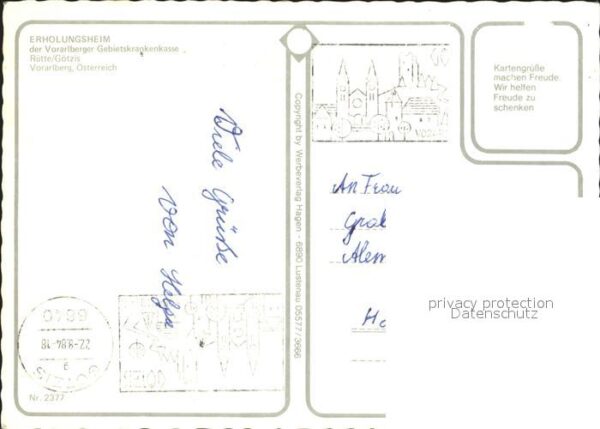 ERHOLUNGSHEIM
der Vorarlberger Gebietskrankenkasse
Rütte/Götzis
Vorarlberg, Österreich
Viele Grüße
von Helga
6840
22.-8.84-18
a
GÖTZIS
Nr. 2377
Copyright by Werbeverlag Hagen - 6890 Lustenau 05577/3666
Kartengrüße
machen Freude.
Wir helfen
Freude zu
schenken
An Frau
privacy protection
Datenschutz